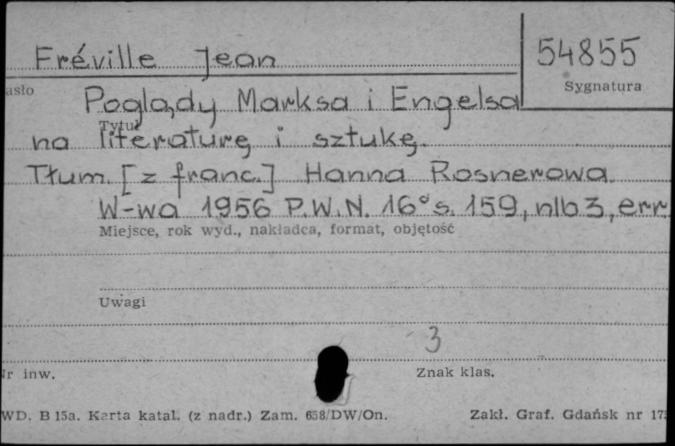 Fréville Jean
54855
asło
Sygnatura
Poglądy Marksa i Engelsa
Tytuł
na literaturę i sztukę.
Tłum. [z franc.] Hanna Rosnerowa.
W-wa 1956 P.W.N. 16° s. 159, nlb 3, err
Miejsce, rok wyd., nakładca, format, objętość
Uwagi
3
Nr inw.
Znak klas.
WD. B 15a. Karta katal. (z nadr.) Zam. 658/DW/On.
Zakł. Graf. Gdańsk nr 17